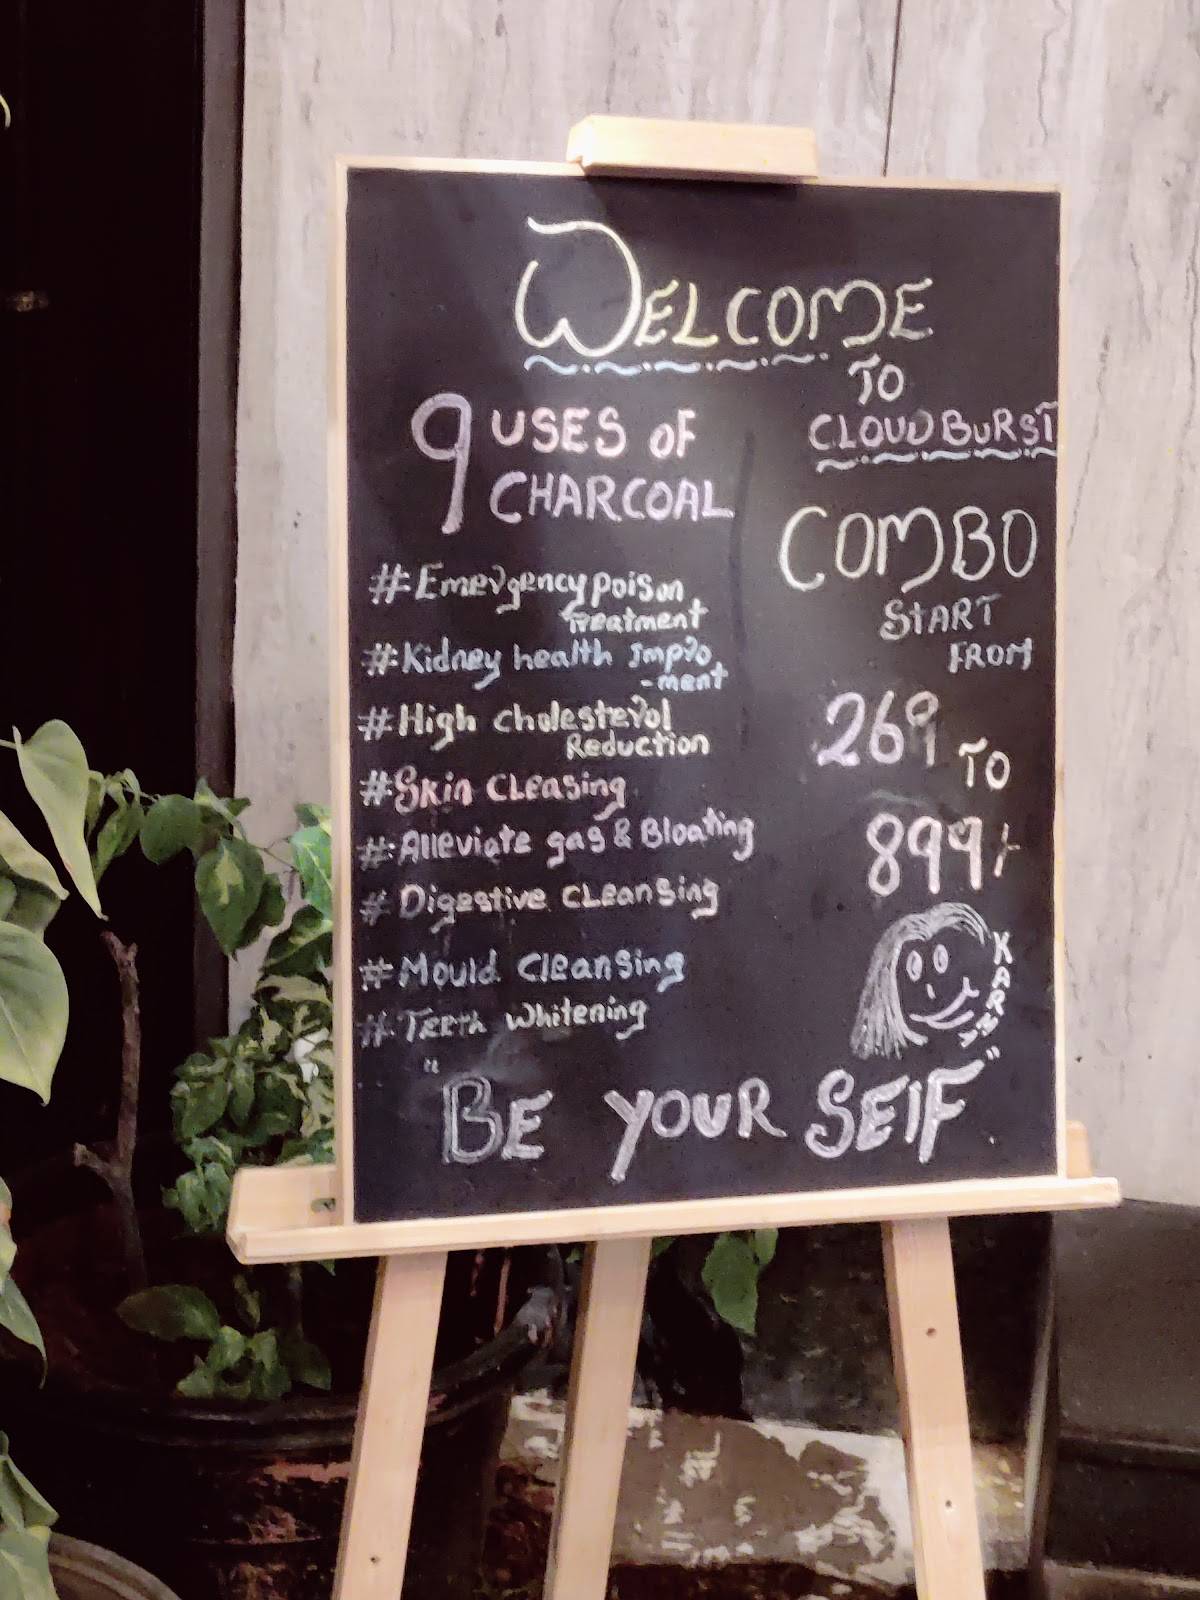 WELCOME
TO
CLOUDBURST
9 USES OF
CHARCOAL
#Emergency poison
Treatment
#Kidney health Impro
-ment
#High cholesterol
Reduction
#Skin CLeasing
#Alleviate gas & Bloating
#Digestive CLeansing
#Mould Cleansing
#Teeth Whitening
COMBO
START
FROM
269 TO
899/-
"BE YOUR SElF"